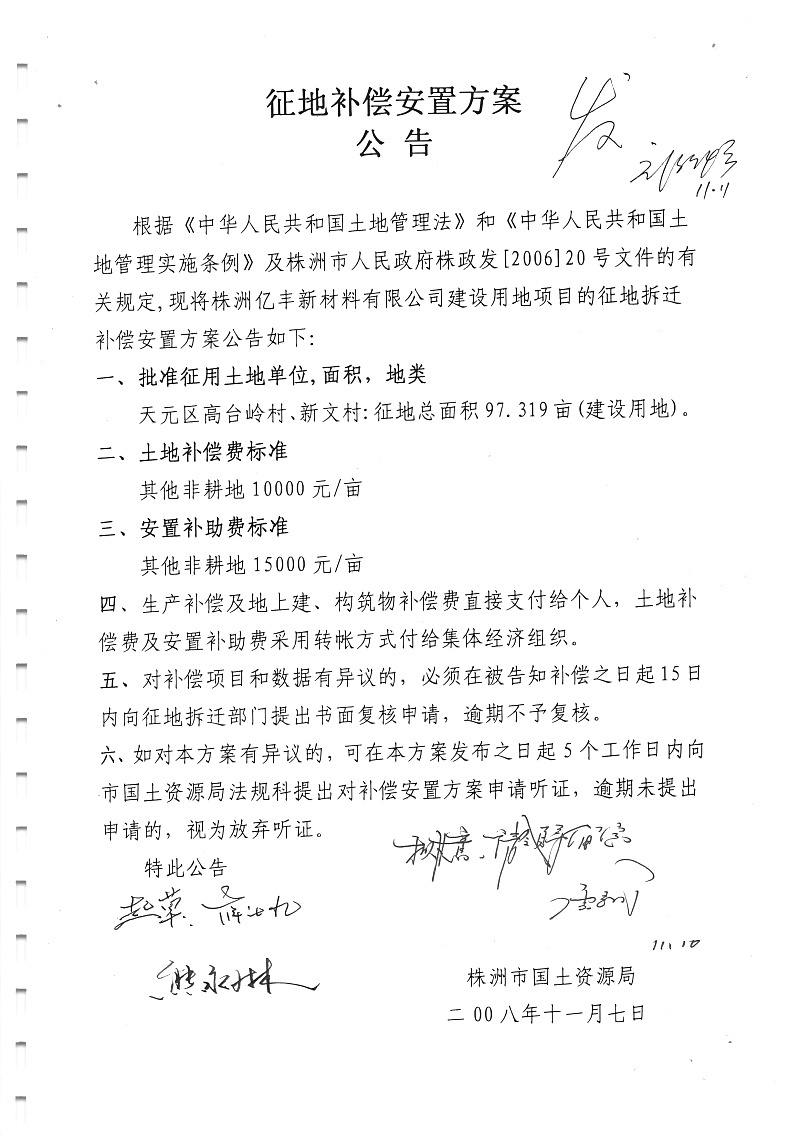 征地补偿安置方案
公 告
发
11.11
根据《中华人民共和国土地管理法》和《中华人民共和国土
地管理实施条例》及株洲市人民政府株政发[2006]20号文件的有
关规定,现将株洲亿丰新材料有限公司建设用地项目的征地拆迁
补偿安置方案公告如下:
一、批准征用土地单位,面积，地类
天元区高台岭村、新文村:征地总面积97.319亩(建设用地)。
二、土地补偿费标准
其他非耕地10000元/亩
三、安置补助费标准
其他非耕地15000元/亩
四、生产补偿及地上建、构筑物补偿费直接支付给个人，土地补
偿费及安置补助费采用转帐方式付给集体经济组织。
五、对补偿项目和数据有异议的，必须在被告知补偿之日起15日
内向征地拆迁部门提出书面复核申请，逾期不予复核。
六、如对本方案有异议的，可在本方案发布之日起5个工作日内向
市国土资源局法规科提出对补偿安置方案申请听证，逾期未提出
申请的，视为放弃听证。
特此公告
11.10
株洲市国土资源局
二00八年十一月七日